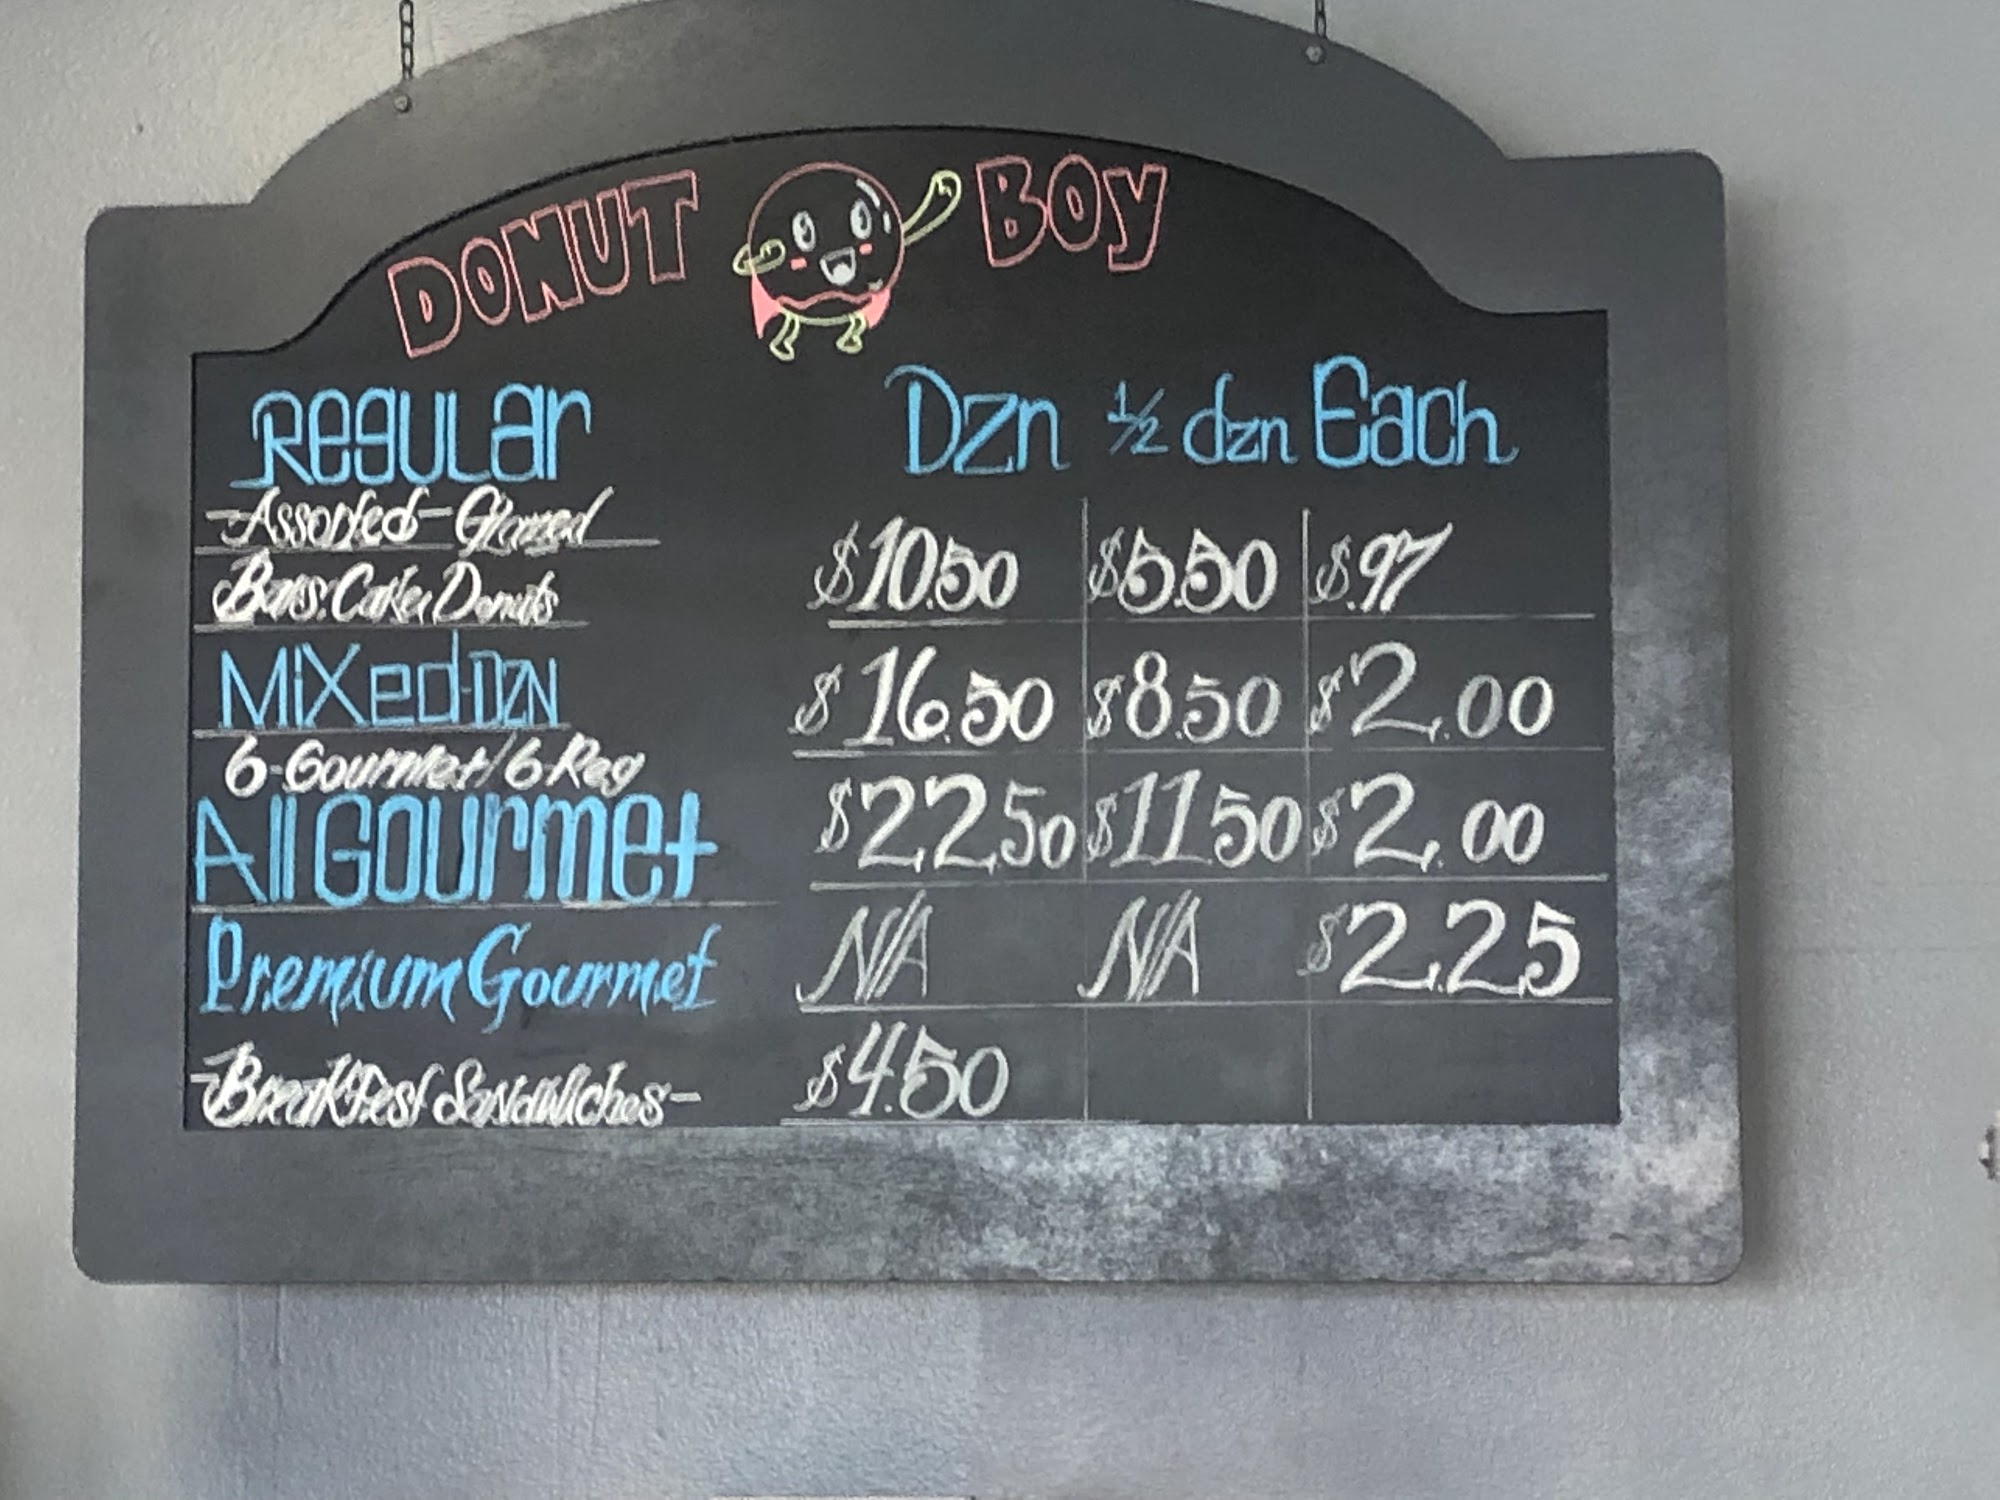 DONUT BOY
Regular Dzn 1/2 dzn Each
-Assorted- Glazed
Bars: Cake Donuts $10.50 $5.50 $.97
Mixed-DZN $16.50 $8.50 $2.00
6-Gourmet/6-Reg
All Gourmet $22.50 $11.50 $2.00
Premium Gourmet N/A N/A $2.25
-Breakfast Sandwiches- $4.50